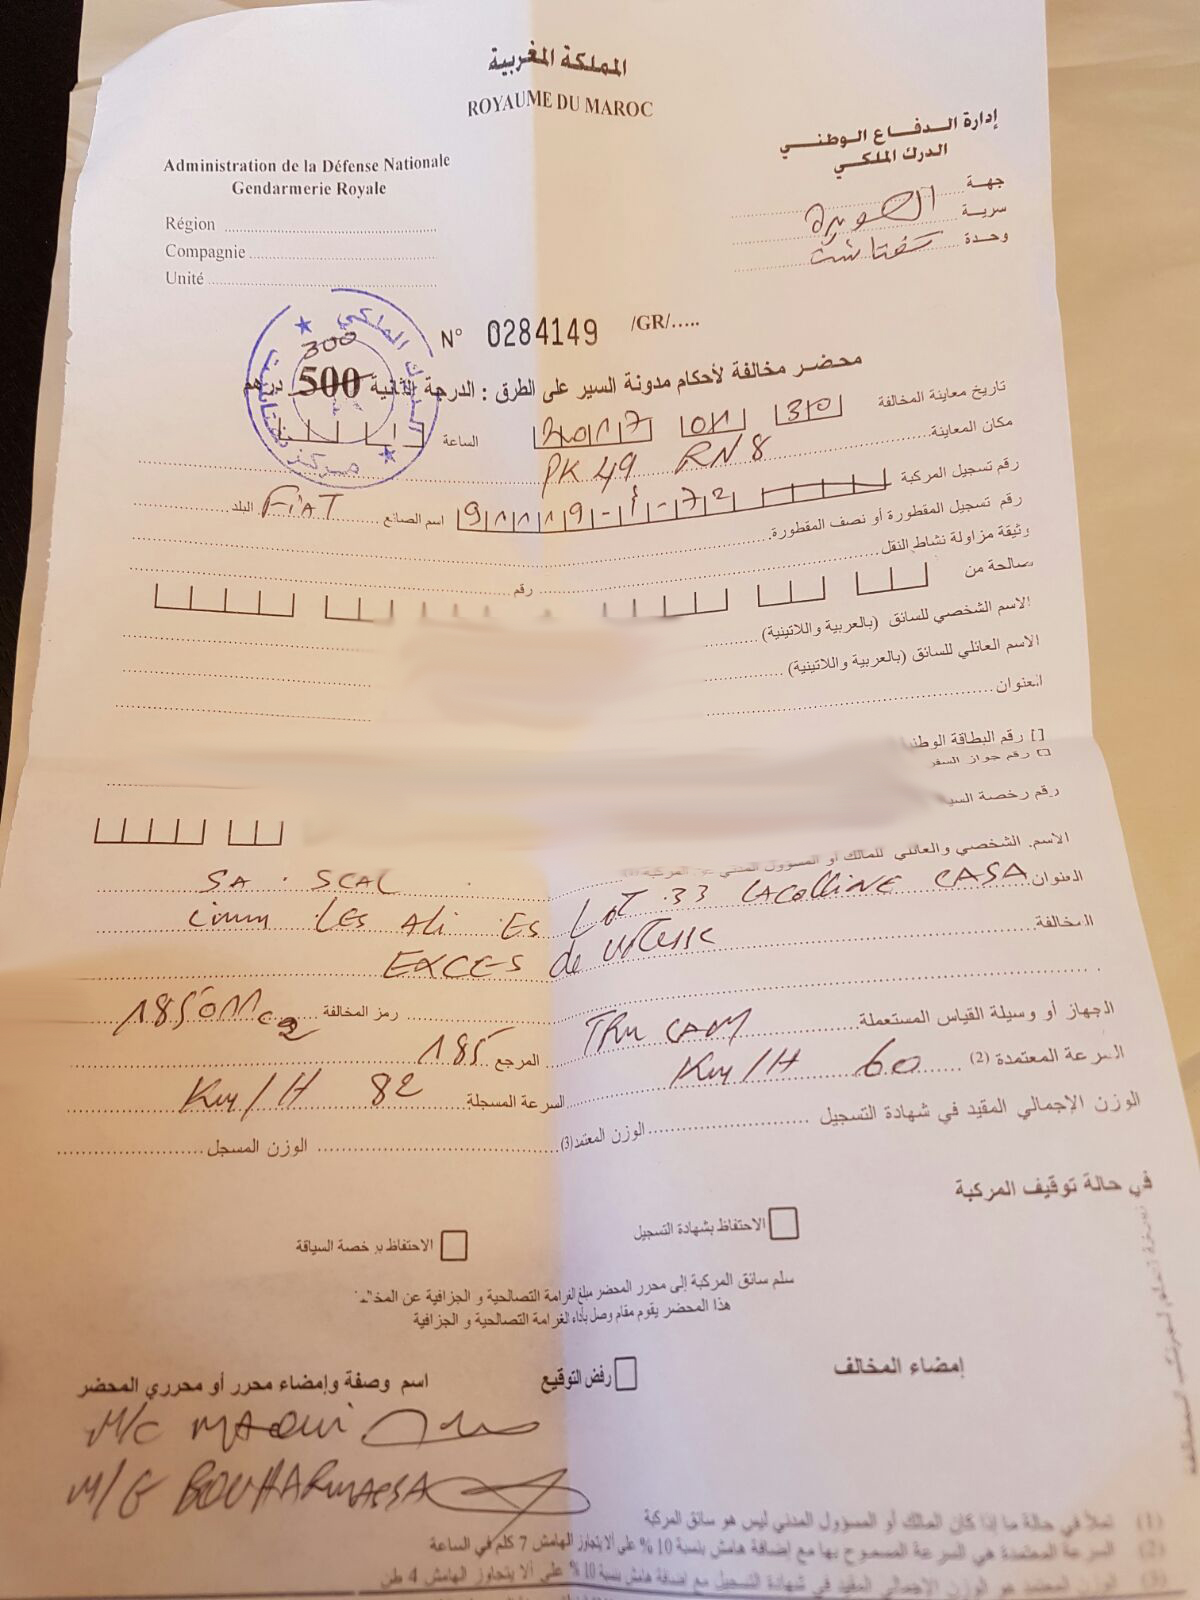 المملكة المغربية
ROYAUME DU MAROC
إدارة الدفاع الوطني
الدرك الملكي
Administration de la Défense Nationale
Gendarmerie Royale
جهة
Région
سرية الصويرة
Compagnie
وحدة
Unité
N° 0284149 /GR/.....
محضر مخالفة لأحكام مدونة السير على الطرق : الدرجة الثانية 500 درهم
300
الدرك الملكي
مركز
تاريخ معاينة المخالفة 30 01 2017 الساعة
مكان المعاينة PK 49 RN8
رقم تسجيل المركبة 72-أ-91119 اسم الصانع FiAT البلد
رقم تسجيل المقطورة أو نصف المقطورة
وثيقة مزاولة نشاط النقل رقم
صالحة من
الاسم الشخصي للسائق (بالعربية واللاتينية)
الاسم العائلي للسائق (بالعربية واللاتينية)
العنوان
[] رقم البطاقة
رقم جواز
رقم رخصة
الاسم. الشخصي والعائلي للمالك أو المسؤول المدني عن المركبة (1)
SA . SCAL
العنوان Lot 33 LACOLLiNE CASA
imm LES ALi ES
المخالفة EXCES de vitesse
رمز المخالفة
الجهاز أو وسيلة القياس المستعملة CAM المرجع 185
السرعة المعتمدة (2) 60 Km/H السرعة المسجلة 82 Km/H
الوزن الإجمالي المقيد في شهادة التسجيل الوزن المعتمد(3) الوزن المسجل
في حالة توقيف المركبة
الاحتفاظ بشهادة التسجيل
الاحتفاظ برخصة السياقة
سلم سائق المركبة إلى محرر المحضر مبلغ الغرامة التصالحية و الجزافية عن
هذا المحضر يقوم مقام وصل بأداء الغرامة التصالحية و الجزافية
إمضاء المخالف
رفض التوقيع
اسم وصفة وإمضاء محرر أو محرري المحضر
M/C
M/G
(1) تملأ في حالة ما إذا كان المالك أو المسؤول المدني ليس هو سائق المركبة
(2) السرعة المعتمدة هي السرعة المسموح بها مع إضافة هامش بنسبة 10 % على ألا يتجاوز الهامش 7 كلم في الساعة
(3) الوزن المعتمد هو الوزن الإجمالي المقيد في شهادة التسجيل مع إضافة هامش بنسبة 10 % على ألا يتجاوز الهامش 4 طن